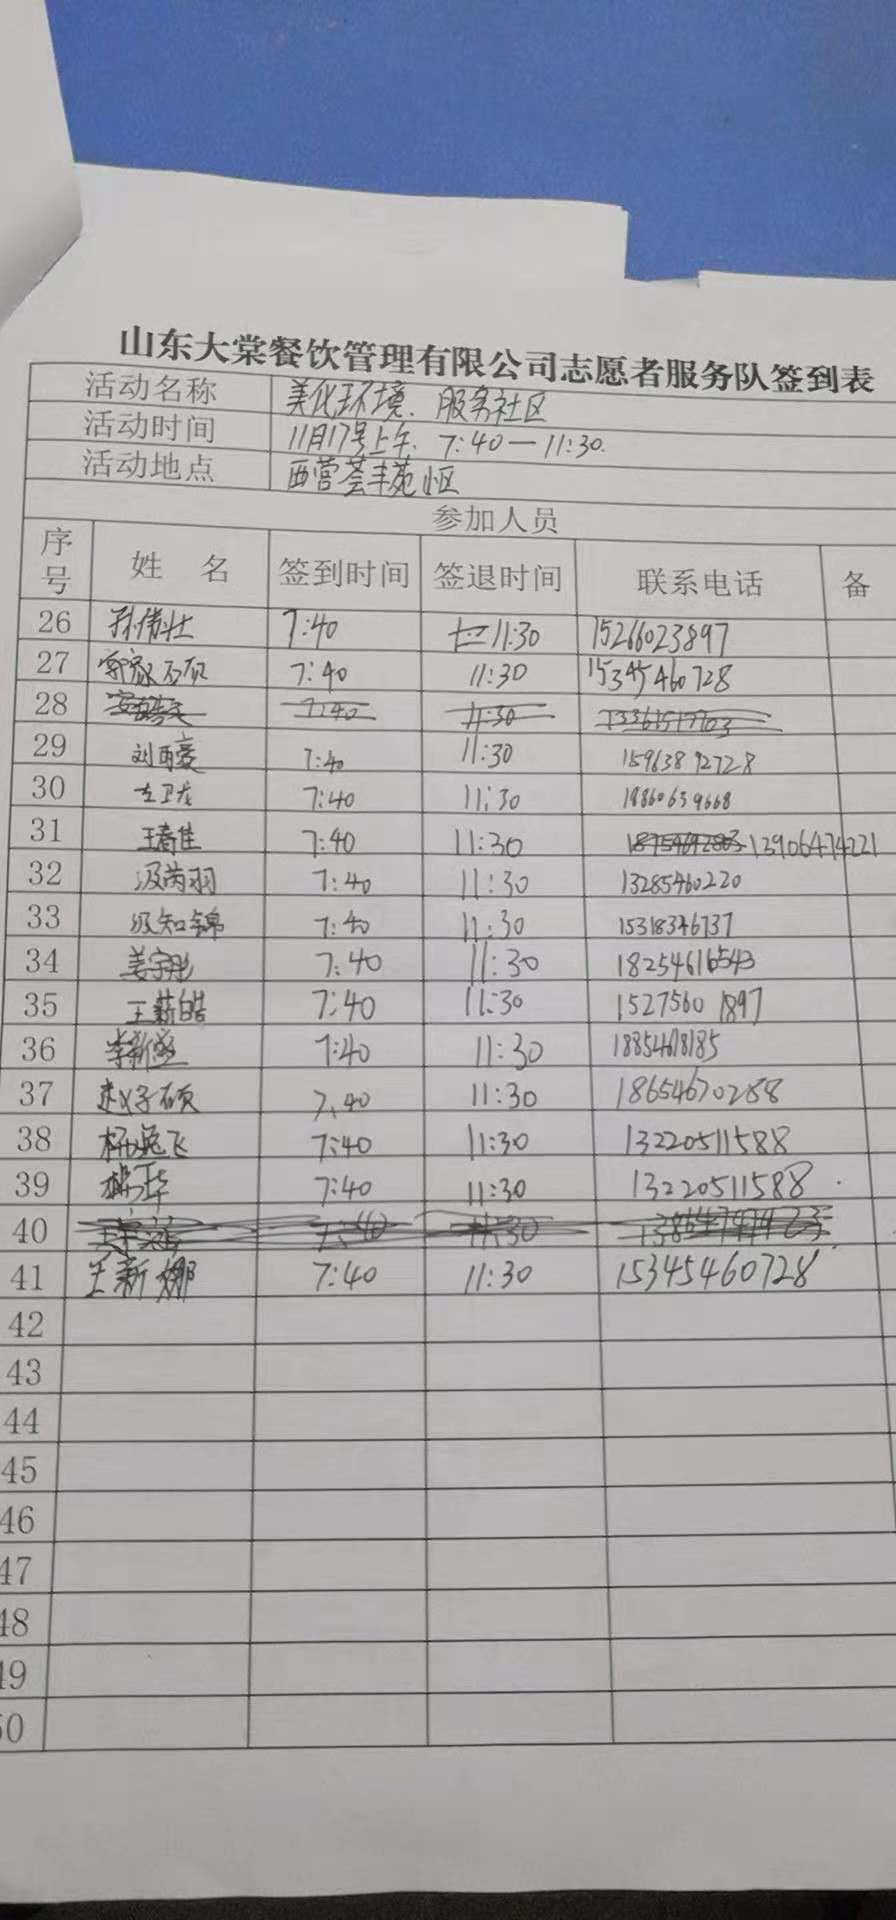 山东大棠餐饮管理有限公司志愿者服务队签到表
活动名称 美化环境、服务社区
活动时间 11月17号上午、7:40—11:30.
活动地点 西营荟丰苑小区
参加人员
序号 姓 名 签到时间 签退时间 联系电话 备
26 孙伟壮 7:40 11:30 15266023897
27 7:40 11:30 15345460728
28 7:40 11:30
29 刘雨蒙 7:40 11:30 15963892728
30 左卫龙 7:40 11:30 18860659668
31 王春佳 7:40 11:30 13906474221
32 汲芮羽 7:40 11:30 13285460220
33 汲知锦 7:40 11:30 15318346737
34 姜宇彤 7:40 11:30 18254616543
35 王薪皓 7:40 11:30 15275601897
36 李新盛 7:40 11:30 18854678185
37 赵子硕 7:40 11:30 18654670288
38 杨逸飞 7:40 11:30 13220511588
39 杨华 7:40 11:30 13220511588
40 7:40 11:30
41 王新娜 7:40 11:30 15345460728
42
43
44
45
46
47
48
49
50